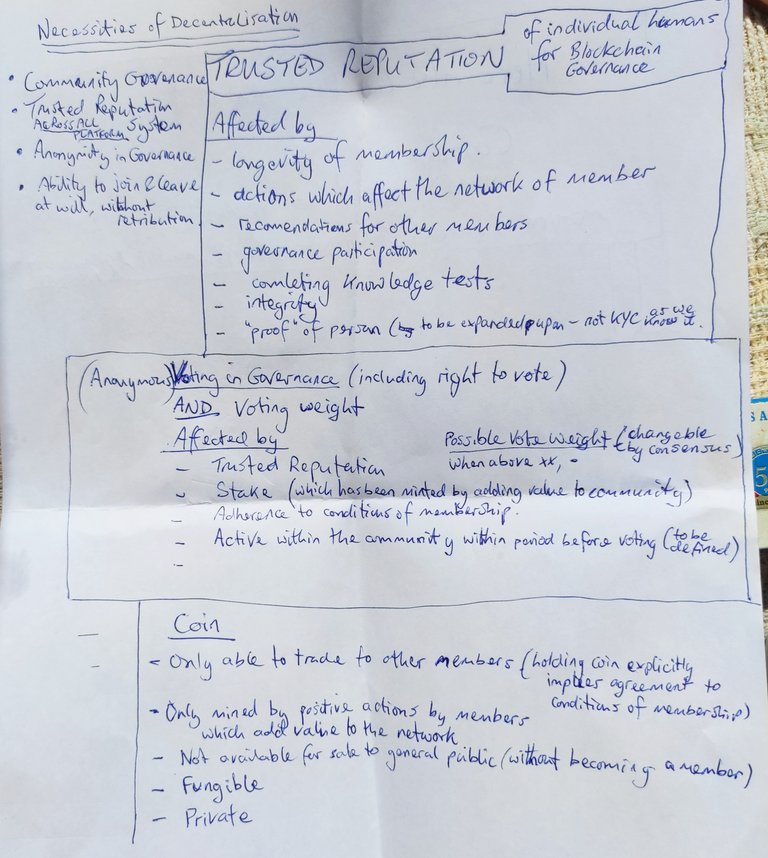 Necessities of Decentralisation
• Community Governance
• Trusted Reputation
ACROSS ALL
PLATFORM System
• Anonymity in Governance
• Ability to join & leave
at will, without
retribution.
TRUSTED REPUTATION
of individual humans
for Blockchain
Governance
Affected by
- longevity of membership.
- actions which affect the network of member
- recomendations for other members
- governance participation
- comleting knowledge tests
- integrity
- "proof" of person (to be expanded upon - not KYC as we
know it.
(Anonymous) Voting in Governance (including right to vote)
AND Voting weight
Affected by
- Trusted Reputation
- Stake (which has been minted by adding value to community)
- Adherence to conditions of membership.
- Active within the community within period before voting (to be
defined)
-
Possible Vote Weight (changeable
by consensus)
when above xx, -
Coin
- Only able to trade to other members (holding coin explicitly
implies agreement to
conditions of membership)
- Only mined by positive actions by members
which add value to the network
- Not available for sale to general public (without becoming a member)
- Fungible
- Private